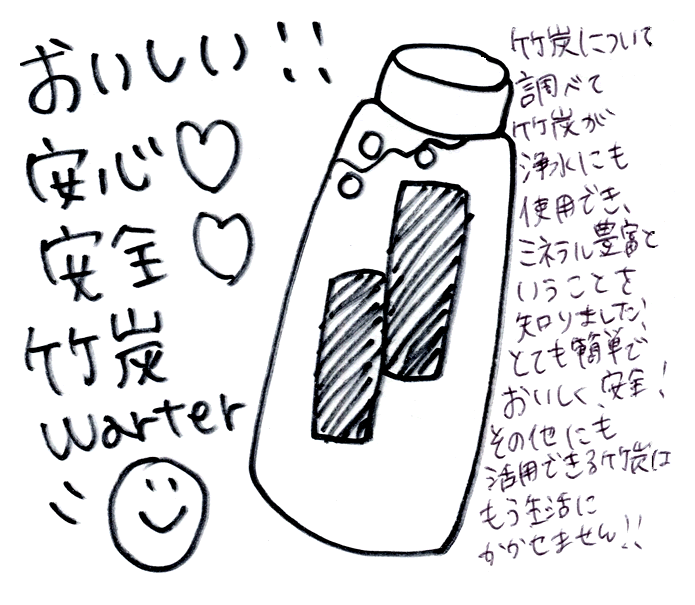 おいしい!!
安心♡
安全♡
竹炭
warter
竹炭について
調べて
竹炭が
浄水にも
使用でき、
ミネラル豊富と
いうことを
知りました、
とても簡単で
おいしく、安全!
その他にも
活用できる竹炭は
もう生活に
かかせません!!